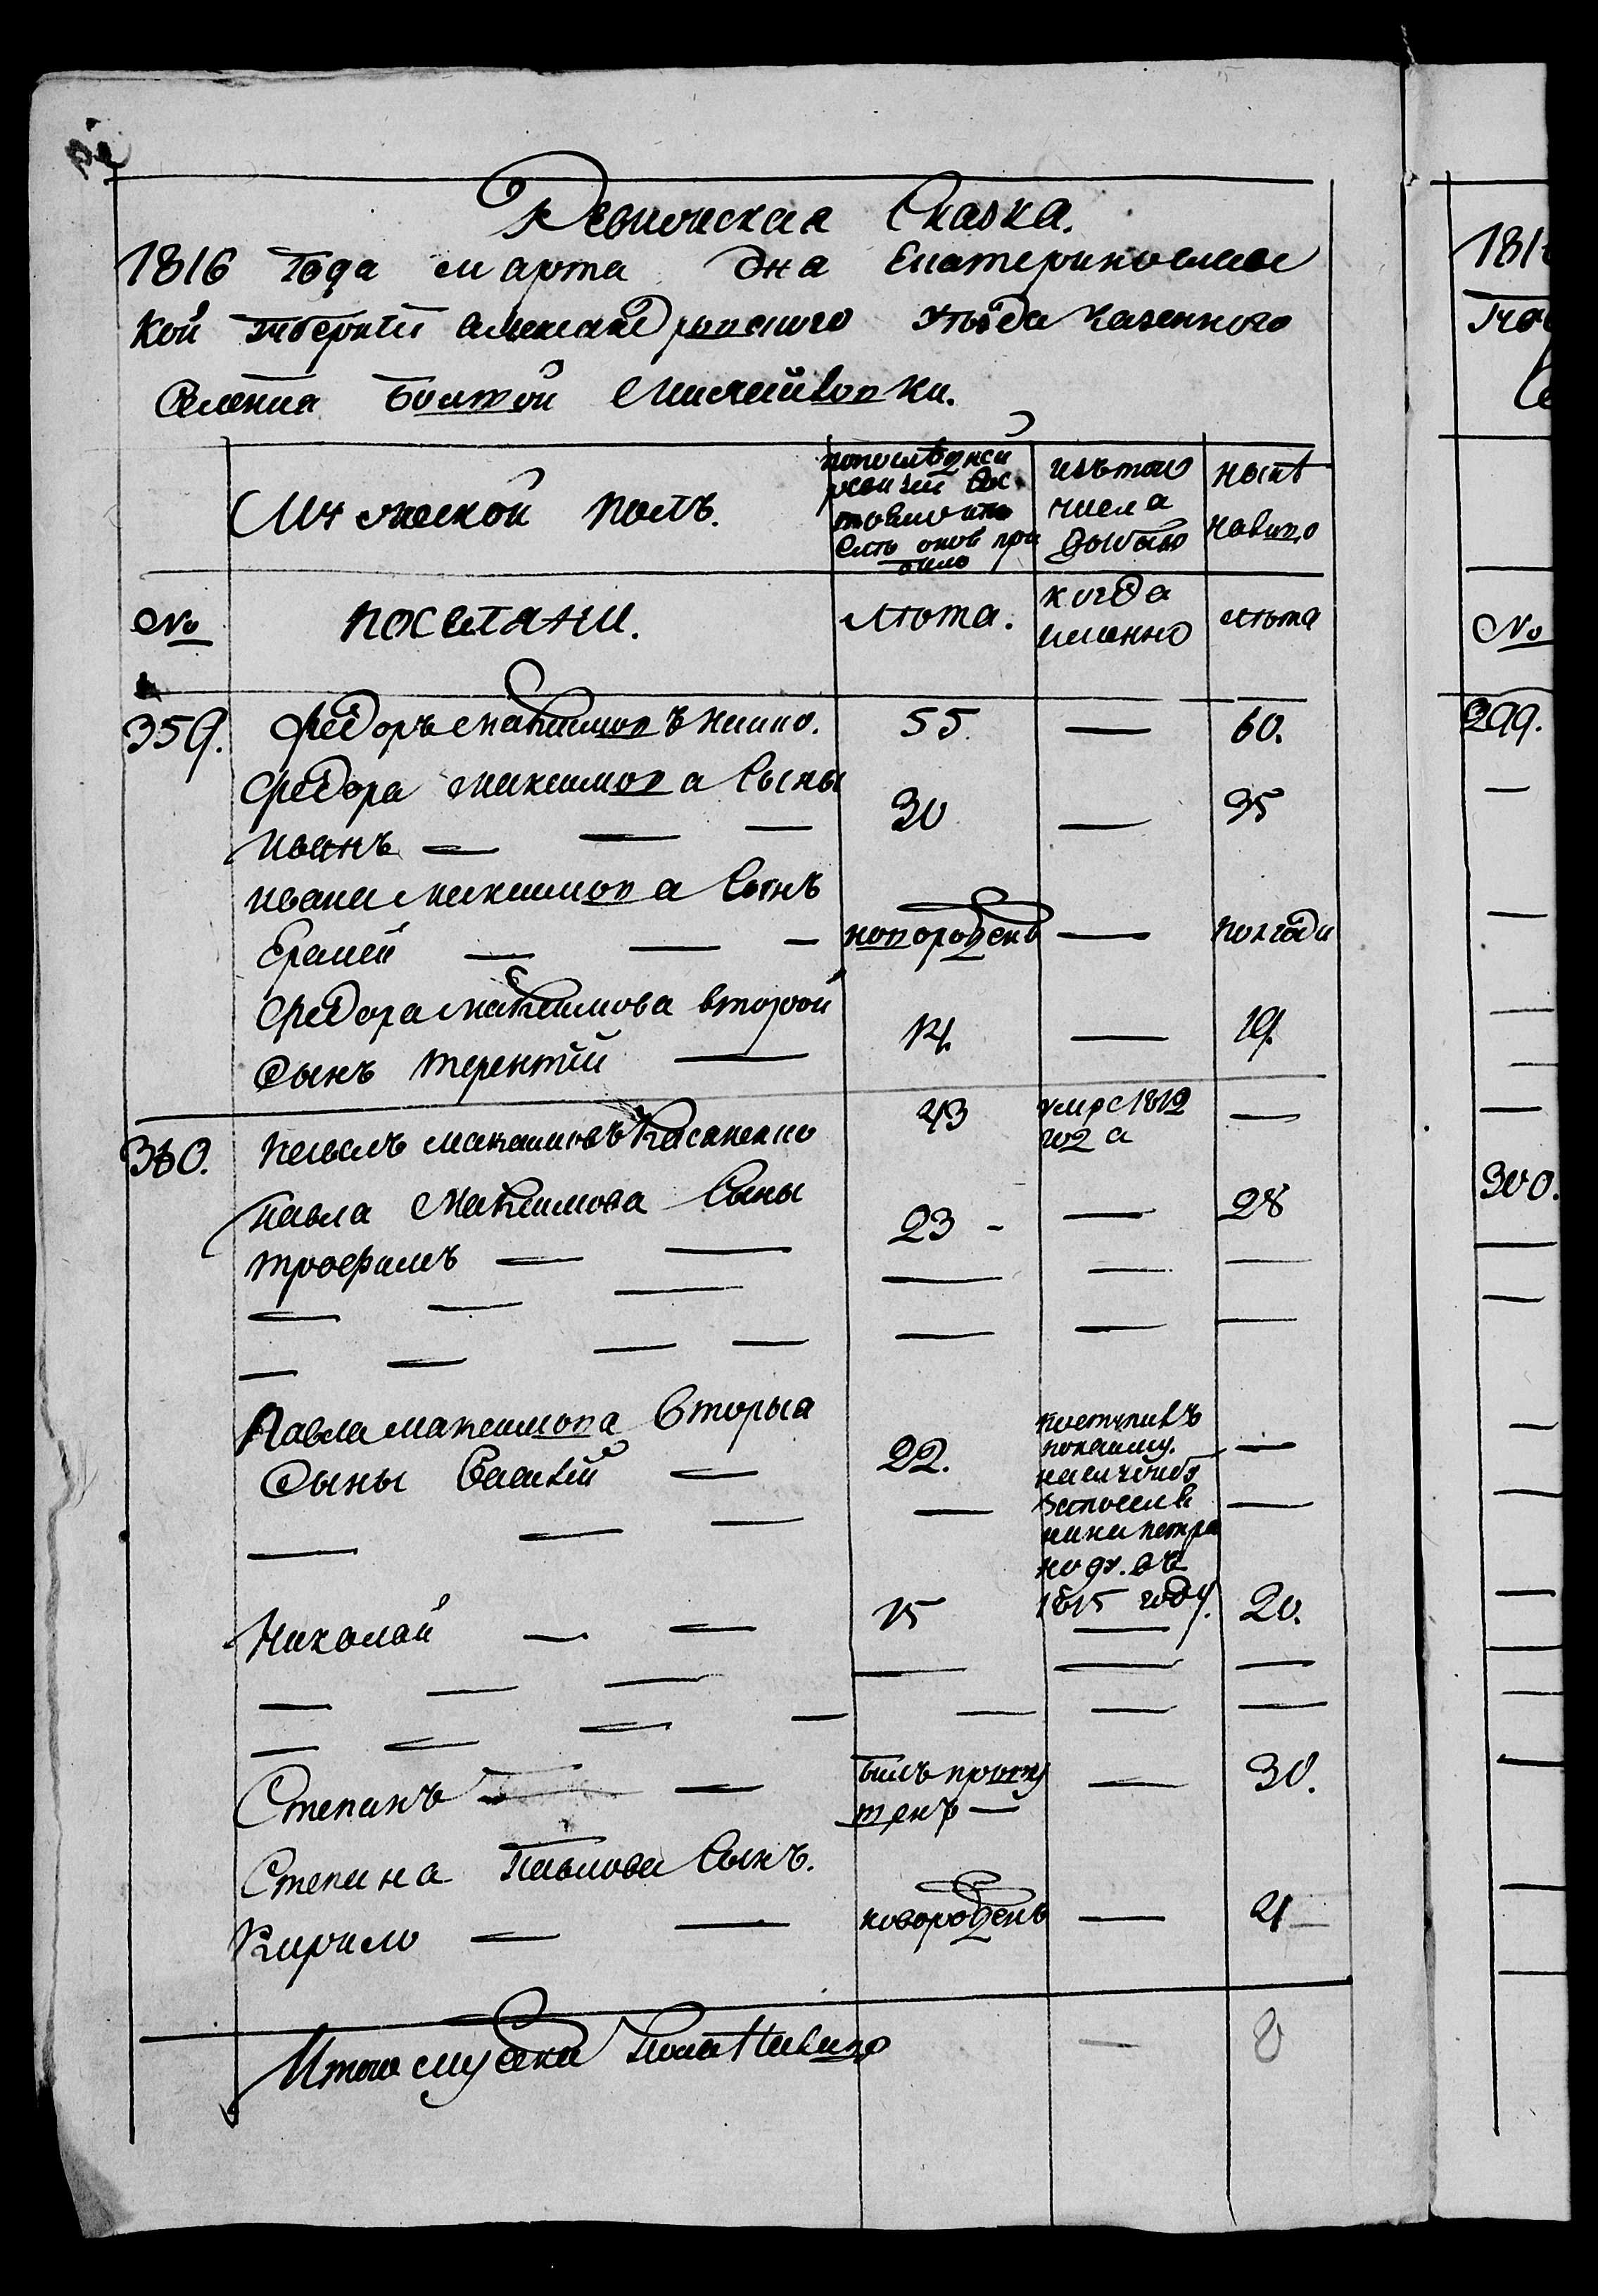 Ревижская Сказка.
1816 года марта дня Екатеринослав
кой губернiи александровского уѣзда казенного
Селенiя Болшой Михайловки.
Мужеской полъ.
попослѣдней
ревизiи сос
тояло и по
слѣ оной при
было
изътого
числа
выбыло
нынѣ
налицо
№
поселяни.
лѣта.
когда
именно
лѣта
359. Федоръ максимовъ 55. — 60.
Федора максимова Сыны
Иванъ — — — 30 — 35
ивана максимова Сынъ
Еремей — — — новорожденъ — полгода
Федора максимова второй
Сынъ терентiй — 14. — 19.
360. павелъ максимовъ 43 умре 1812
года —
павла максимова Сыны
трофимъ — — 23 — — 28
— — — — — —
— — — — — — —
Павла максимова вторыя
Сыны Василiй — 22. —
— — — — —
1815 году.
Николай — — 15 — 20.
— — — — — —
— — — — — — —
Степанъ — — былъ пропу
щенъ — — 30.
Степана Павлова Сынъ.
Кирило — — новорожденъ — 4
Итого мужска пола налицо — 8
181
№
299.
—
300.